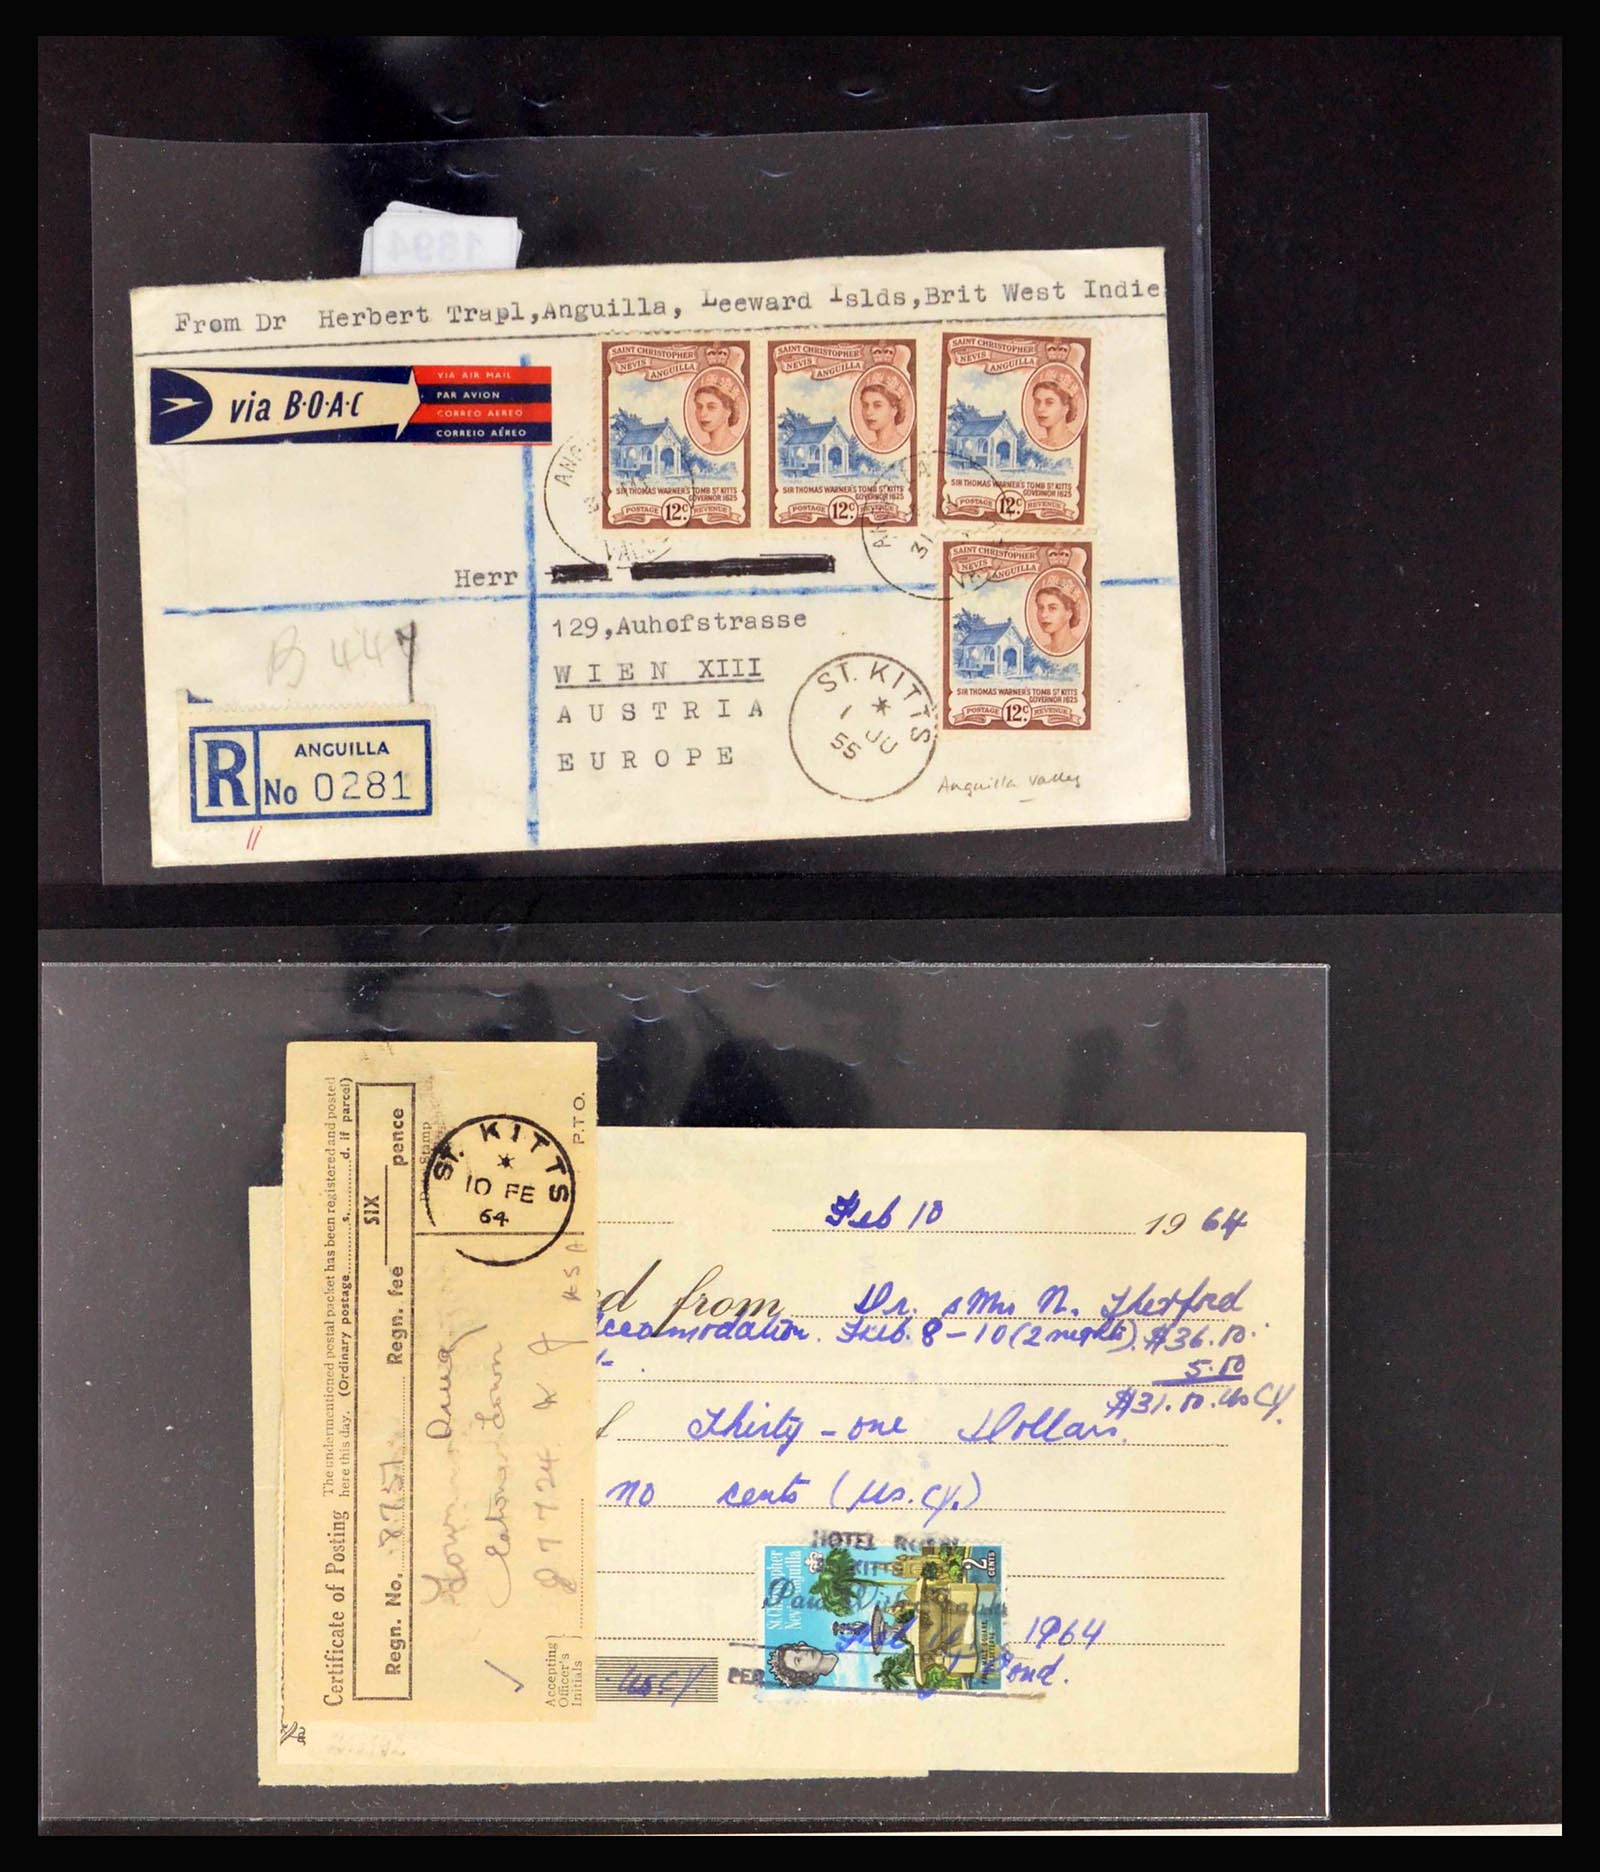 1894
From Dr Herbert Trapl,Anguilla, Leeward Islds,Brit West Indie
via B·O·A·C
VIA AIR MAIL
PAR AVION
CORREO AEREO
CORREIO AÉREO
SAINT CHRISTOPHER
NEVIS
ANGUILLA
SIR THOMAS WARNER'S TOMB ST KITTS
GOVERNOR 1625
POSTAGE 12c. REVENUE
SAINT CHRISTOPHER
NEVIS
ANGUILLA
SIR THOMAS WARNER'S TOMB ST KITTS
GOVERNOR 1625
POSTAGE 12c. REVENUE
SAINT CHRISTOPHER
NEVIS
ANGUILLA
SIR THOMAS WARNER'S TOMB ST KITTS
GOVERNOR 1625
POSTAGE 12c. REVENUE
SAINT CHRISTOPHER
NEVIS
ANGUILLA
SIR THOMAS WARNER'S TOMB ST KITTS
GOVERNOR 1625
POSTAGE 12c. REVENUE
Herr
129,Auhofstrasse
WIEN XIII
AUSTRIA
EUROPE
ST. KITTS
1 JU
55
B 447
R
ANGUILLA
No 0281
Anguilla Valley
Certificate of Posting
The undermentioned postal packet has been registered and posted
here this day. (Ordinary postage s. d. if parcel)
Regn. No. 8757 Regn. fee SIX pence
Date Stamp
ST. KITTS
10 FE
64
Accepting
Officer's
Initials
P.T.O.
Feb 10 1964
d from Dr. & Mrs N.
ccomodation. Feb. 8 - 10 (2 nights). $36.00
5.00
$31.00. US Cy.
Thirty - one Dollars.
no cents (US. Cy.)
HOTEL
St Christopher
Nevis Anguilla
2
CENTS
1964
US Cy
PER